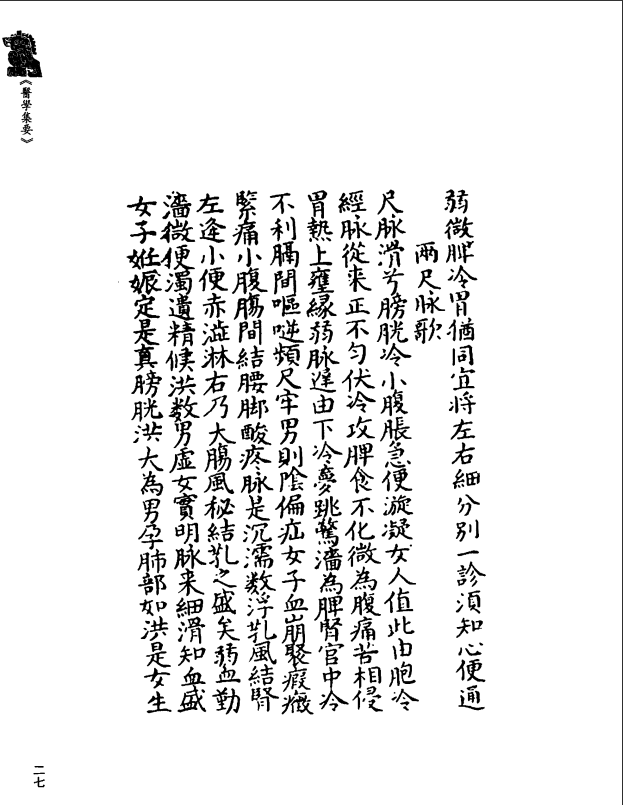 《醫學集要》
弱微脾冷胃猶同宜将左右細分别一診須知心便通
兩尺脉歌
尺脉滑兮膀胱冷小腹脹急便漩凝女人值此由胞冷
經脉從来正不匀伏冷攻脾食不化微為腹痛苦相侵
胃熱上壅緣弱脉遲由下冷夢跳驚濇為脾腎宫中冷
不利膈間嘔逆頻尺牢男則陰偏疝女子血崩聚瘕癥
緊痛小腹腸間結腰脚酸疼脉是沉濡数浮芤風結腎
左逢小便赤澁淋右乃大腸風秘結芤之盛矣弱血勤
濇微便濁遺精候洪数男虚女實明脉来細滑知血盛
女子妊娠定是真膀胱洪大為男孕肺部如洪是女生
二七